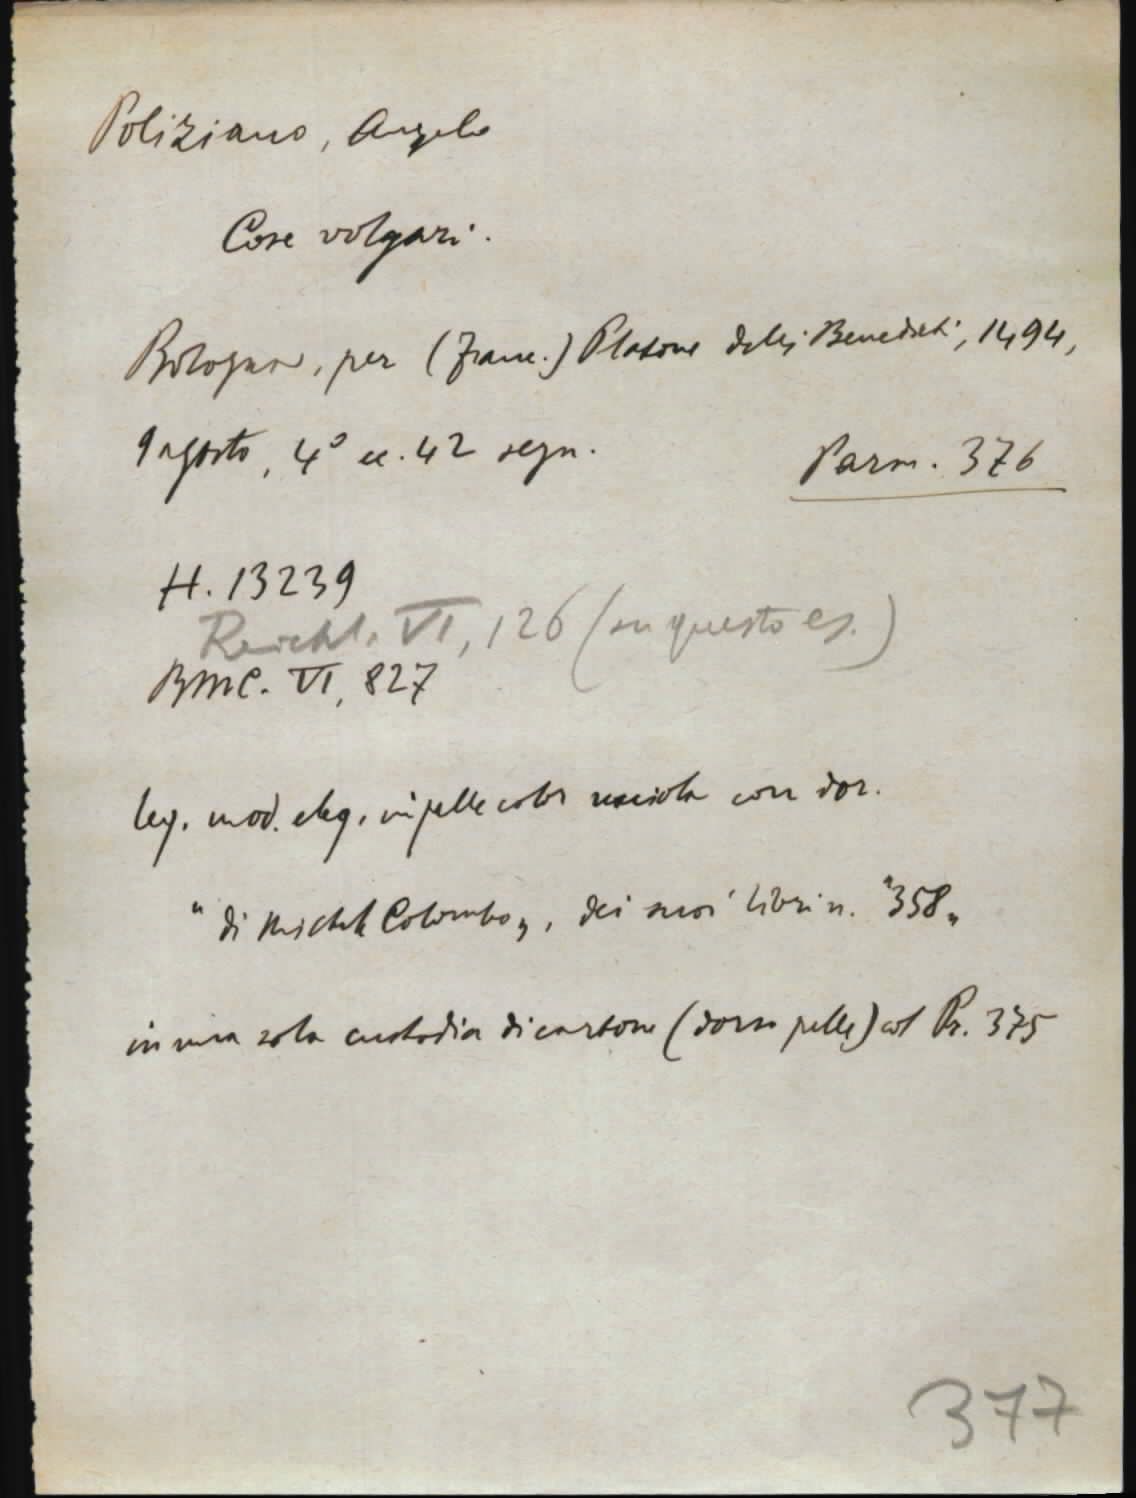 Poliziano, Angelo
Cose volgari.
Bologna, per (Franc.) Platone delli Benedicti, 1494,
9 agosto, 4° cc. 42 segn.
Parm. 376
H. 13239
Reichl. VI, 126 (su questo es.)
BMC. VI, 827
leg. mod. eleg. in pelle color nociola con dor.
"di Michele Colombo„, dei suoi libri n. "358„
in una sola custodia di cartone (dorso pelle) col Pr. 375
377